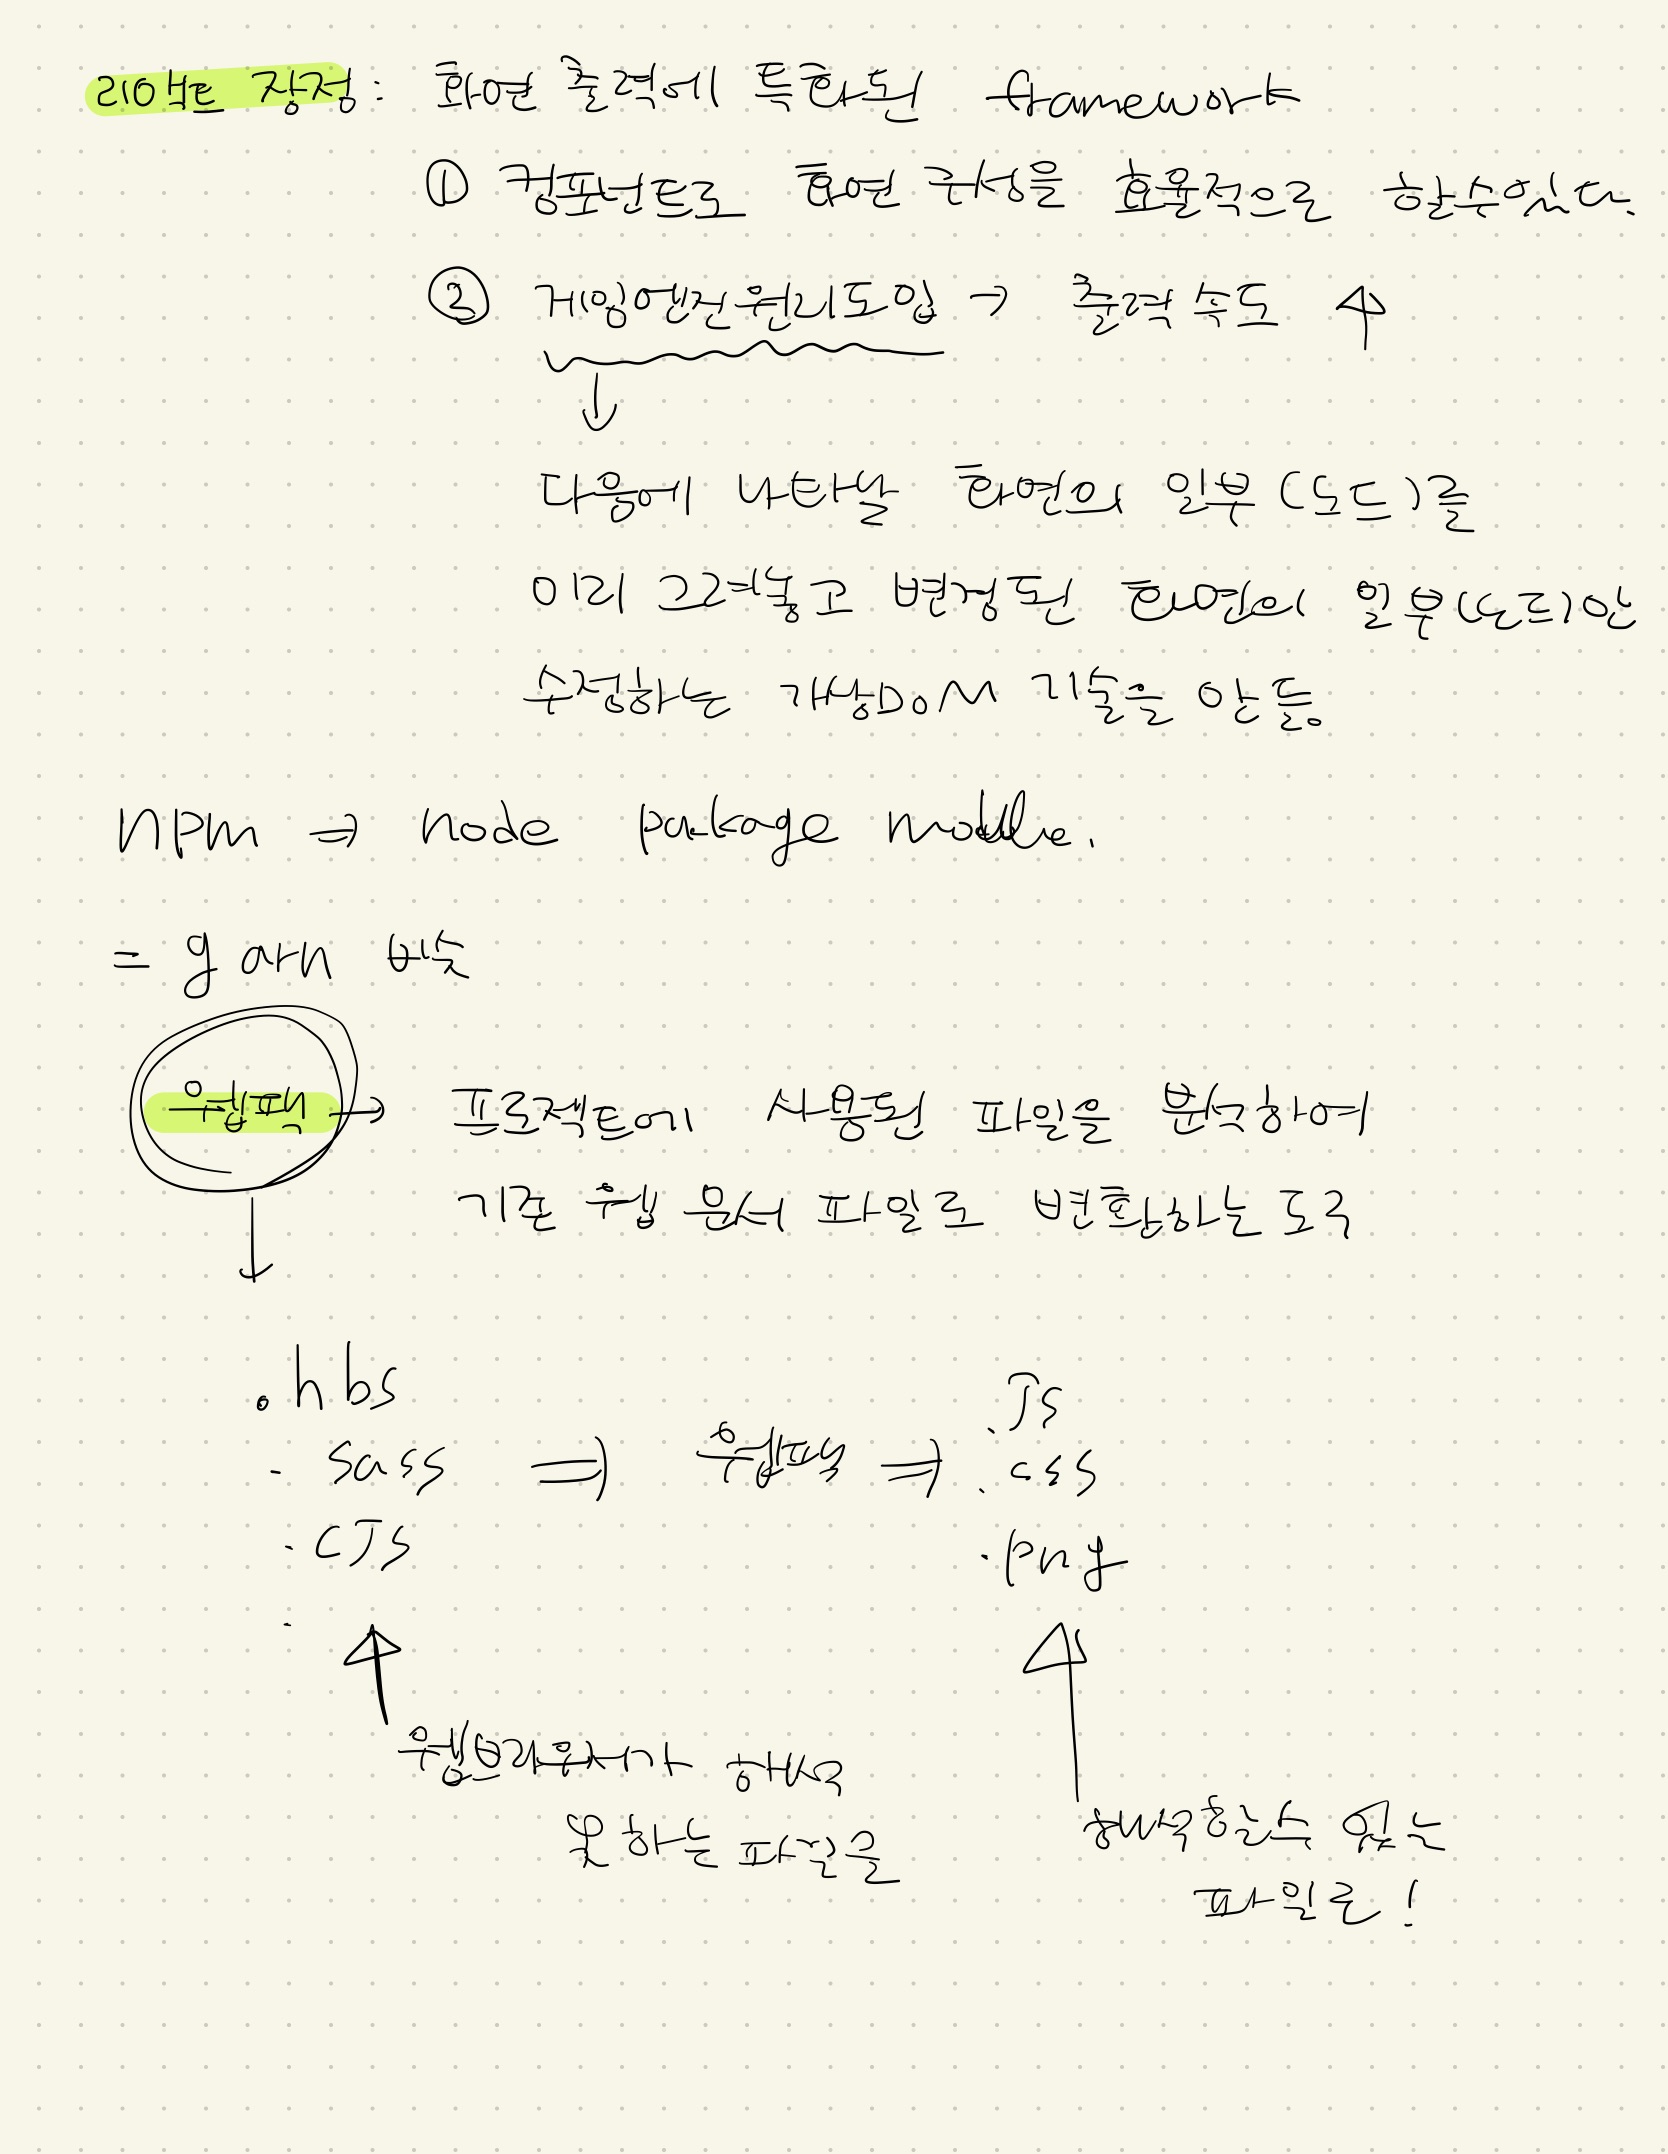 리액트 장점: 화면 출력에 특화된 framework
① 컴포넌트로 화면 구성을 효율적으로 할수있다.
② 게임엔진원리도입 → 출력 속도 ↑
↓
다음에 나타날 화면의 일부(노드)를
미리 그려놓고 변경된 화면의 일부(노드)만
수정하는 가상DOM 기술을 만듦.
npm ⇒ node package module.
= yarn 비슷
웹팩 → 프로젝트에 사용된 파일을 분석하여
기존 웹 문서 파일로 변환하는 도구
↓
.hbs
.sass ⇒ 웹팩 ⇒
.CJS
.
.JS
.css
.png
웹브라우저가 해석
못하는 파일을
해석할수 있는
파일로!